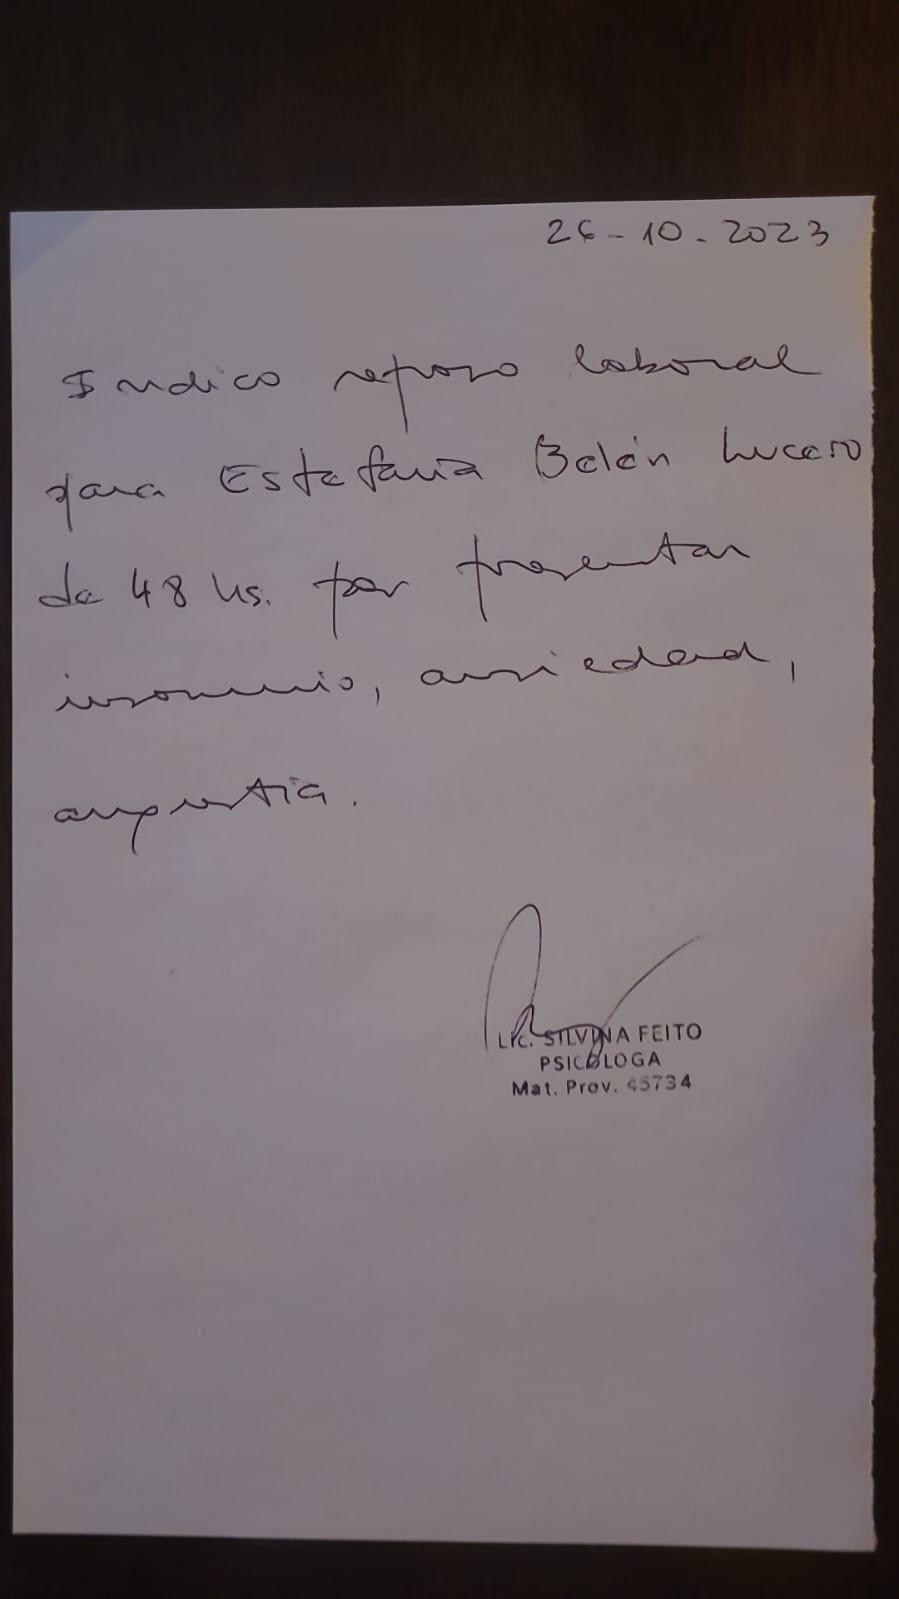 26-10-2023
Indico reposo laboral
para Estefania Belén Lucero
de 48 hs. por presentar
insomnio, ansiedad,
angustia.
LIC. SILVINA FEITO
PSICÓLOGA
Mat. Prov. 45734